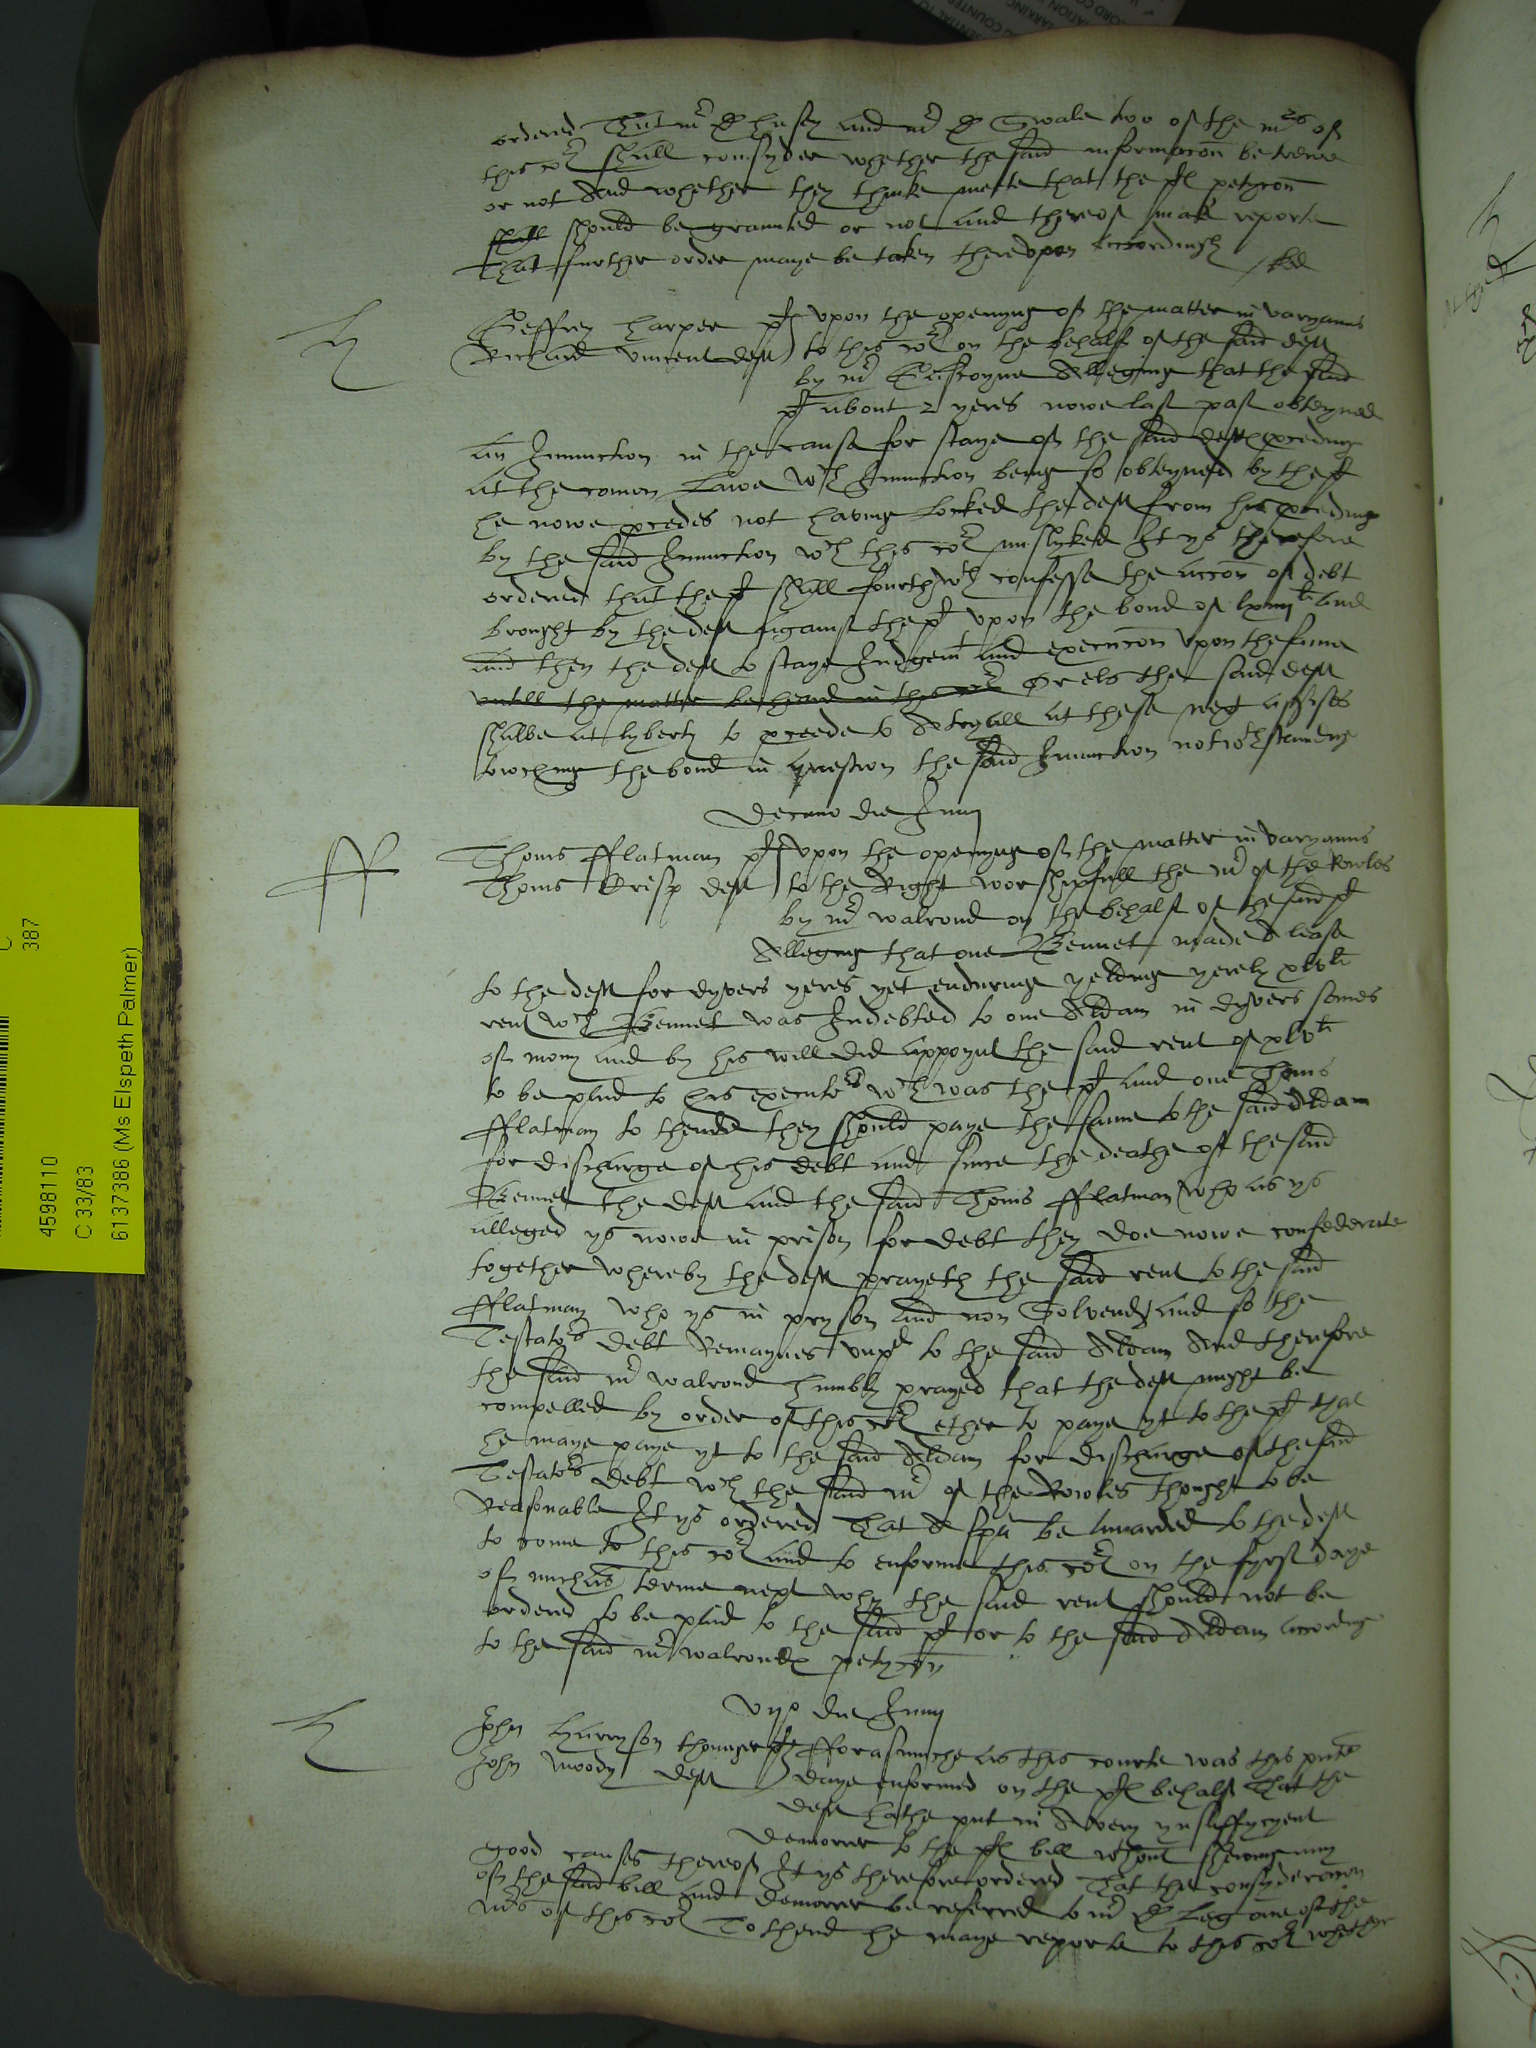 ordered That mr D Husey and mr D Swale two of the mrs of
this cort shall consyder whether the said informacon be trewe
or not And whether they thinke meete that the pl petycon
shall should be graunted or not and thereof make reporte
That further order maye be taken thereupon accordingly
Geffrey Harper pl upon the openyng of the matter in varyanns
Richard Vincent deft to this cort on the behalf of the said deft
by mr Gascoyne Alleging that the said
pl about 2 yeres nowe last past obteyned
an Iniunction in the cause for staye of the said deft pceding
at the comon Lawe wch Iniunction being so obteyned by the pl
he nowe pcedes not having locked the deft from his pceding
by the said Iniunction wch this cort myslyked It ys therefore
ordered that the pl shall fourthwth confesse the accon of debt
brought by the deft against the pl upon the bond of and
and then the deft to staye Iudgemt and execucon upon the same
untill the matter be heard in this cort Or els the said deft
shalbe at lyberty to pceede to A tryall at these next assises
towching the bond in question the said Iniunction notwthstanding
Decimo die Junij
Thoms Fflatman pl upon the openyng of the matter in varyanns
Thoms Crisp deft to the Right worshipfull the mr of the Rowles
by mr walrond on the behalf of the said pl
Alleging that one Bennet made A lease
to the deft for dyvers yeres yet enduring yelding yerely xlvli
rent wch Bennet was Indebted to one Aldam in dyvers somes
of mony and by his will did appoynt the said rent of xlvli
to be paid to his executors wch was the pl and one Thoms
Fflatman to thende they should paye the same to the said Aldam
for discharge of his debt and since the deathe of the said
Bennet the deft and the said Thoms Fflatman who as ys
alleged ys nowe in prison for debt they doe nowe confederate
together whereby the deft prayeth the said rent to the said
Fflatman who ys in pryson and non Solvend and so the
Testators debt Remaynes unpd to the said Aldam And therefore
the said mr walrond humbly prayed that the deft might be
compelled by order of this cort ether to paye yt to the pl that
he maye paye yt to the said Aldam for discharge of the said
Testators debt wch the said mr of the Rowles thought to be
Reasonable It ys ordered That A spa be awarded to the deft
to come to this cort and to enforme this cort on the fyrst daye
of michas terme next why the said rent should not be
ordered to be paid to the said pl or to the said Aldam according
to the said mr walrond petycon
die Junij
John Harryson pl Fforasmuche as this courte was this pnte
John Moody deft daye enformed on the pl behalf That the
deft hathe put in A very ynsuffycyent
demorrer to the pl bill wthout shewing any
good causes thereof It ys therefore ordered That the consyderacon
of the said bill and demorrer be referred to mr D Leg one of the
mrs of this cort To thend he maye reporte to this cort whether
4598110
C 33/83
6137386 (Ms Elspeth Palmer)
C
387